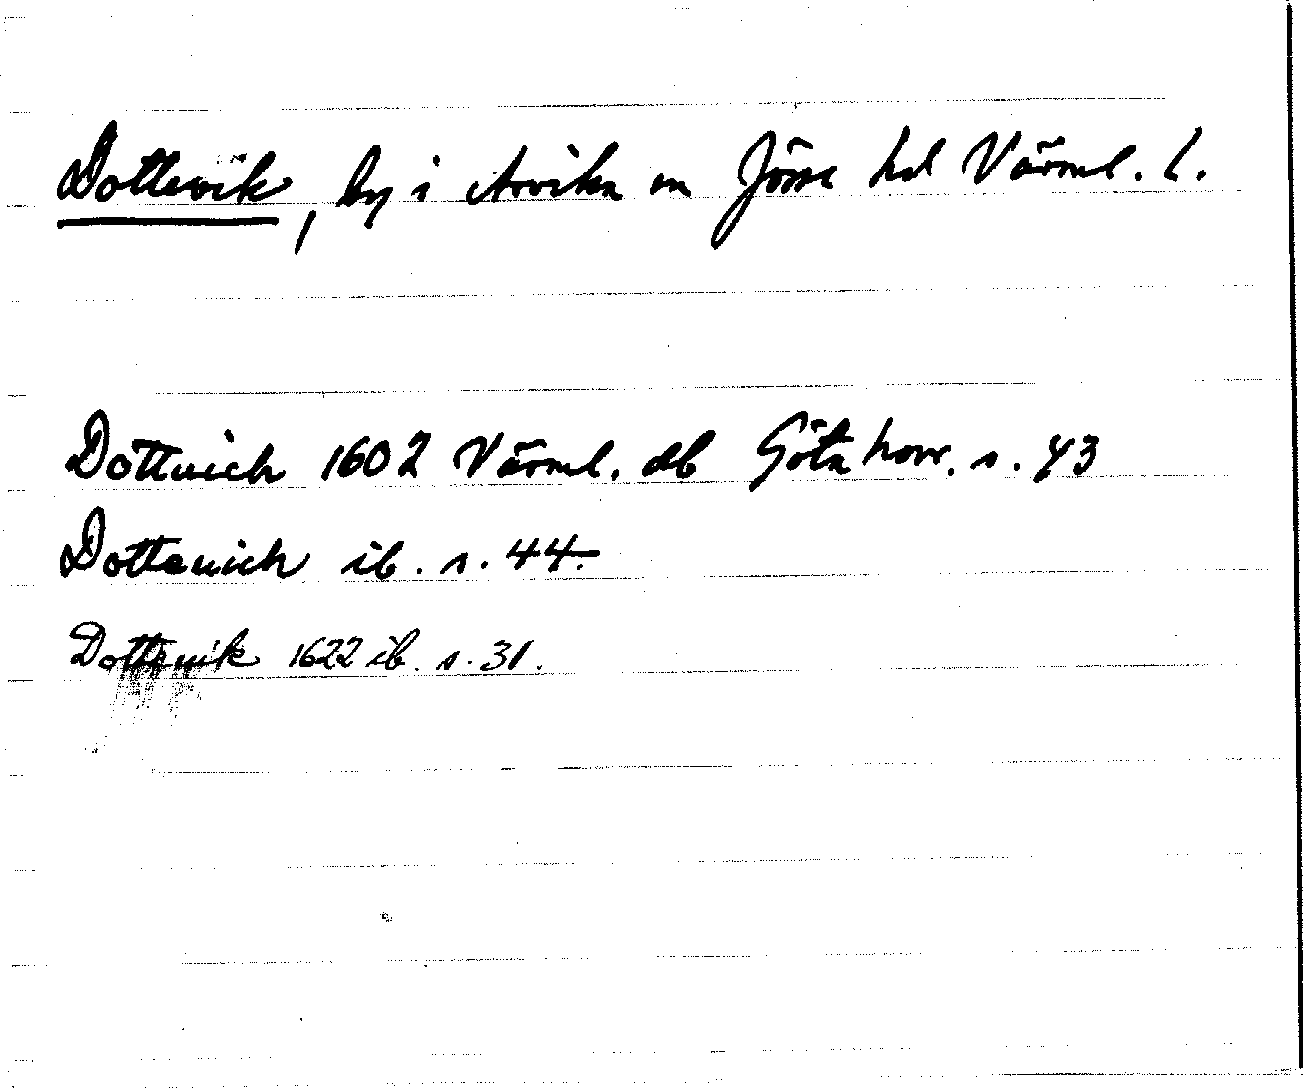 Dottevik, by i Arvika sn Jösse hd Värml. l.
Dottuich 1602 Värml. db Göta hovr. s. 43
Dotteuich ib. s. 44.
Dotteuik 1622 ib. s. 31.